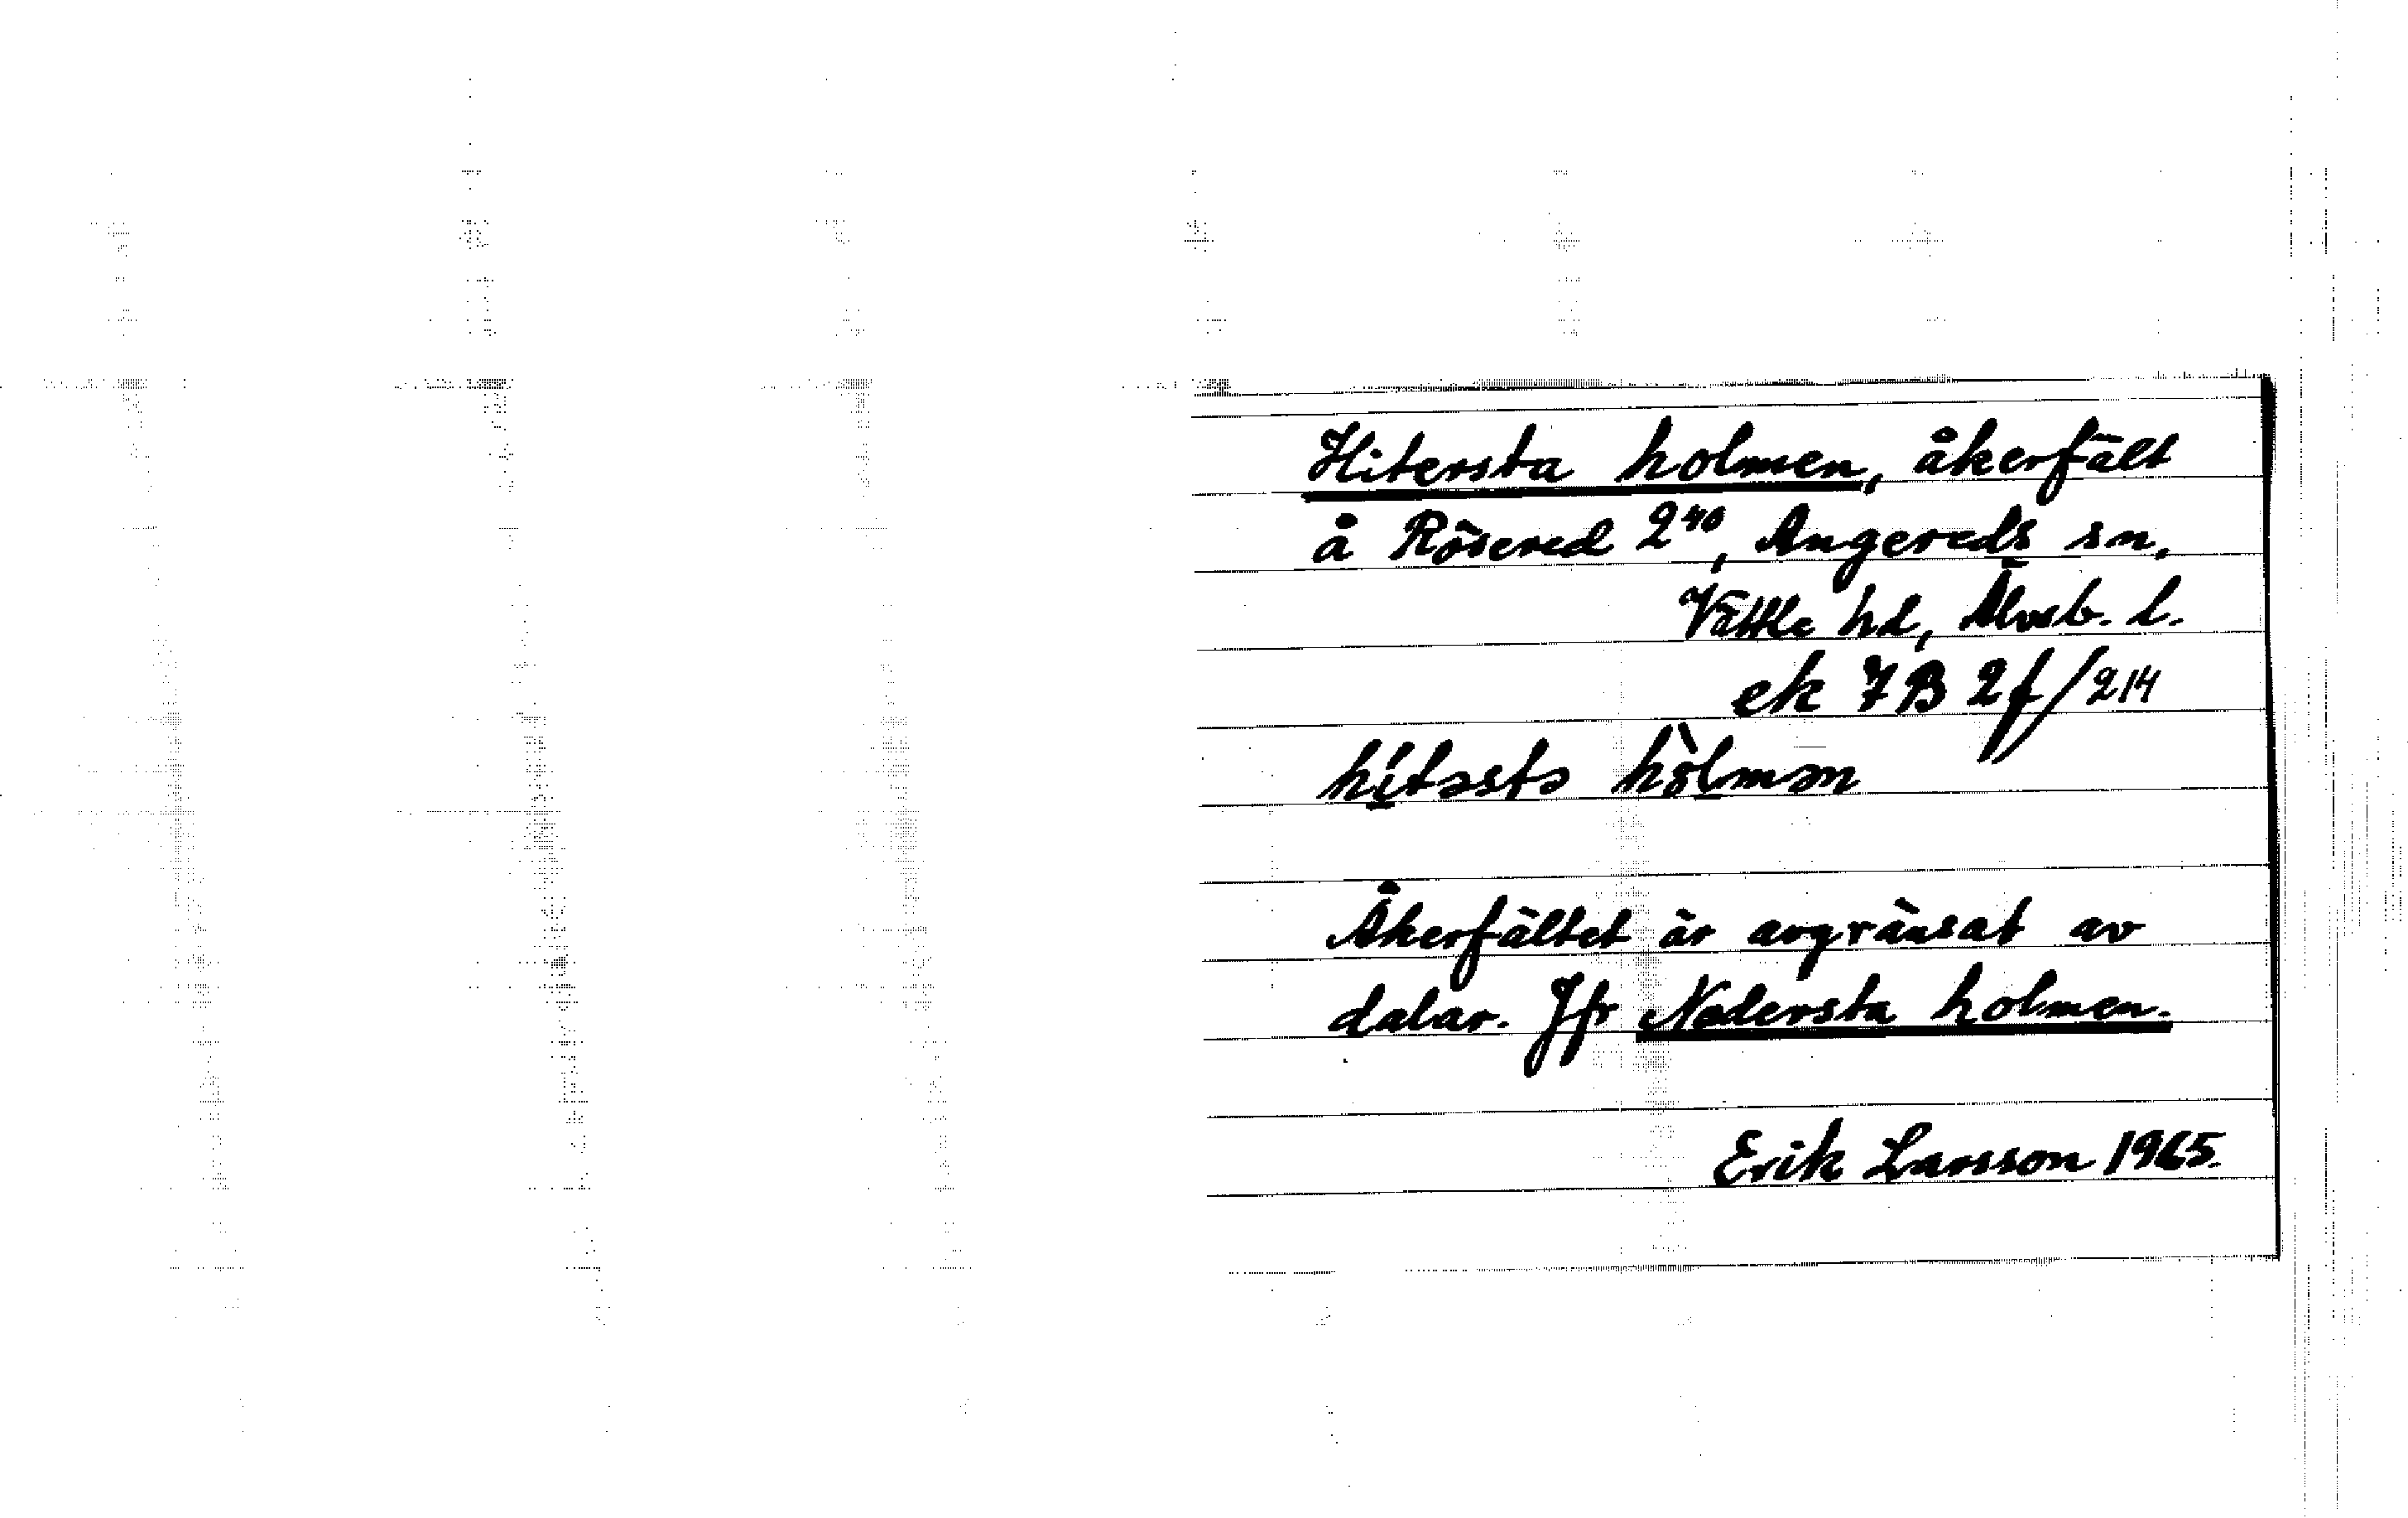 Hitersta holmen, åkerfält
å Rösered 2⁴⁰, Angereds sn,
Vättle hd, Älvsb. l.
ek 7B 2f/214
hítəstə hòlmən
Åkerfältet är avgränsat av
dalar. Jfr Nedersta holmen.
Erik Larsson 1965.